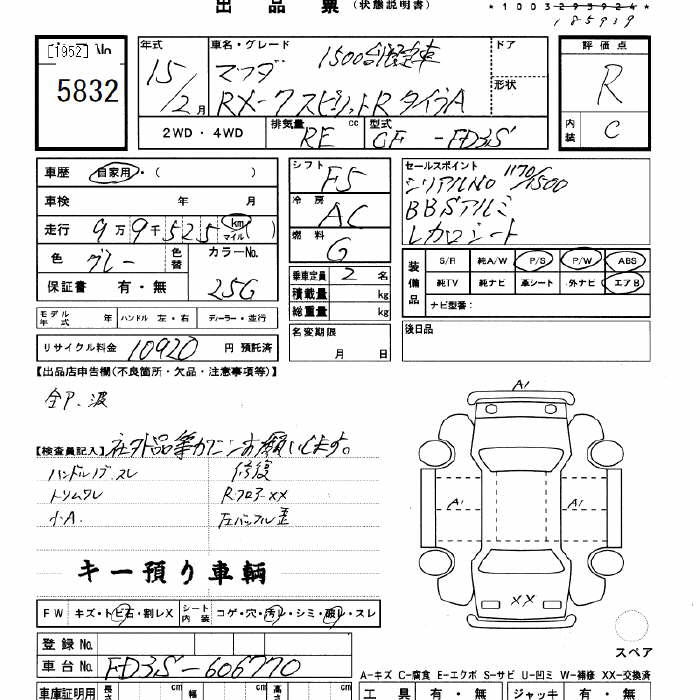 出 品 票 (状態説明書)
*1003-293924*
185919
[1952] No
5832
年式 車名・グレード ドア
15/2月 マツダ 1500台限定車
RX-7 スピリットR タイプA
形状
2WD・4WD 排気量 RE cc 型式 GF -FD3S
評価点
R
内装 C
車歴 自家用・( )
車検 年 月
走行 9万9千525 (km マイル)
色 グレー 色替 カラーNo.
25G
保証書 有・無
シフト F5
冷房 AC
燃料 G
乗車定員 2 名
積載量 kg
総重量 kg
セールスポイント
シリアルNO 1170/1500
BBSアルミ
レカロシート
装備品
S/R 純A/W P/S P/W ABS
純TV 純ナビ 革シート 外ナビ エアB
ナビ型番:
モデル年式 年 ハンドル 左・右 ディーラー・並行
名変期限
月 日
後日品
リサイクル料金 10920 円 預託済
【出品店申告欄(不良箇所・欠品・注意事項等)】
全P.波
【検査員記入】社外品等カクニンお願いします。
ハンドルノブスレ 修復
トリムワレ R.フロアーXX
小A. 左バッフル歪
キー預り車輌
A1
A1 A1
XX
スペア
FW キズ・トビ石・割レX シート内装 コゲ・穴・汚レ・シミ・破レ・スレ
登録No.
車台No. FD3S-606770
A-キズ C-腐食 E-エクボ S-サビ U-凹ミ W-補修 XX-交換済
車庫証明用 長さ cm 幅 cm 高さ cm 工具 有・無 ジャッキ 有・無